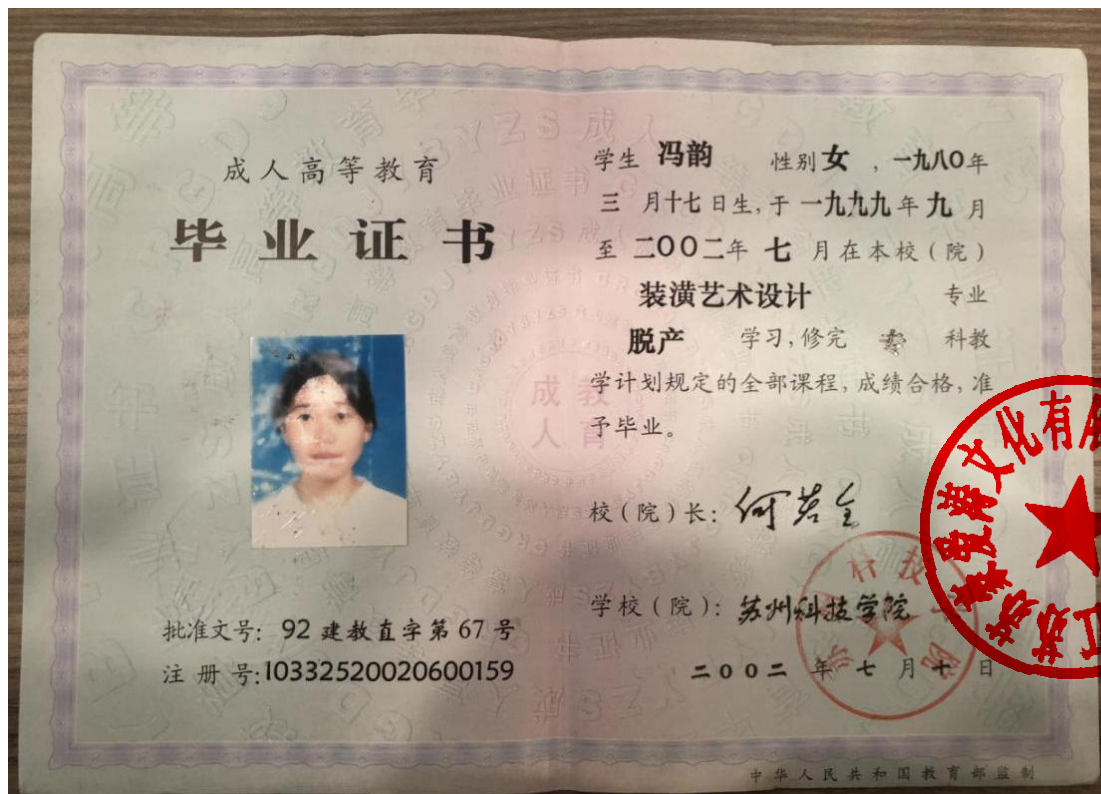 成人高等教育
毕业证书
批准文号：92 建教直字第 67 号
注册号：10332520020600159
学生 冯韵 性别女，一九八〇年
三 月十七日生，于 一九九九年九月
至 二〇〇二年 七 月在本校（院）
装潢艺术设计 专业
脱产 学习，修完 科教
学计划规定的全部课程，成绩合格，准
予毕业。
校（院）长：何若全
学校（院）：苏州科技学院
二〇〇二 年 七 月 十 日
中华人民共和国教育部监制
成教
人育
文化有
江苏